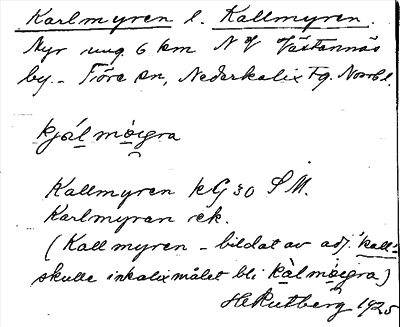 Karlmyren l. Kallmyren.
Myr ung 6 km NV Västannäs
by. - Töre sn, Nederkalix Tg. Norrb l.
kjál móigra
Kallmyren kG 30 S M.
Karlmyran ek.
(Kallmyren - bildat av adj. kall-
skulle i nkalixmålet bli kàl móigra)
H Rutberg 1925